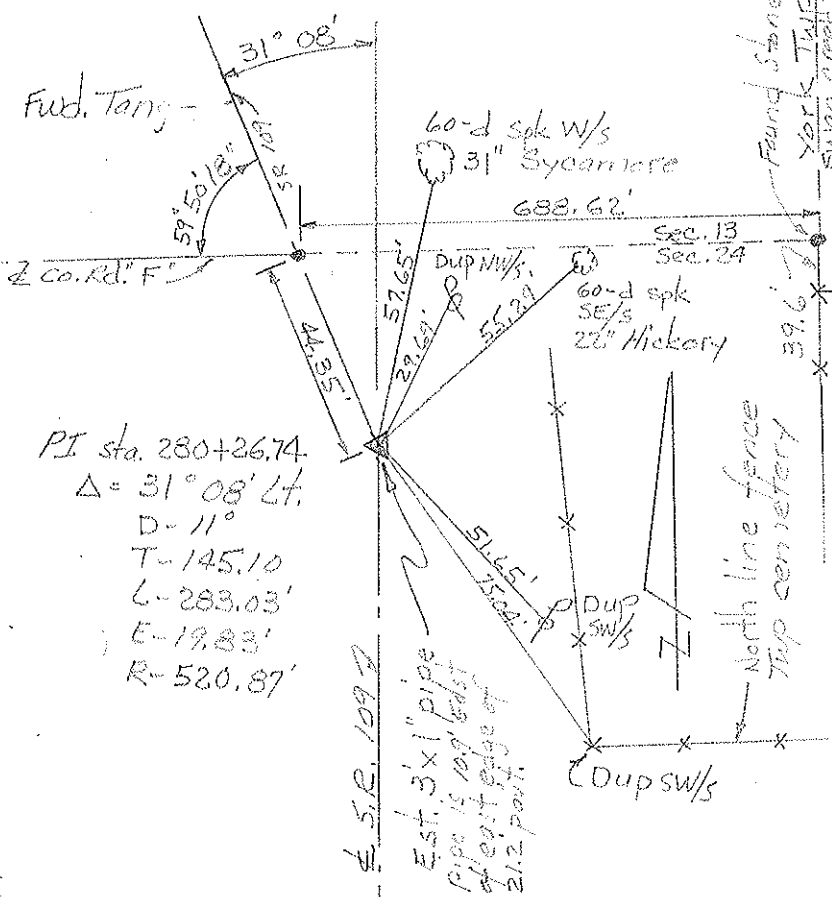 31° 08'
Fwd. Tang
59° 50' 18"
SR 109
60-d spk W/s
31" Sycamore
688.62'
Sec. 13
Sec. 24
Found Stone
York Twp
℄ Co. Rd. "F"
57.65'
Dup NW/s.
29.69'
55.29
60-d spk
SE/s
22" Hickory
39.6'
44.35'
PI sta. 280+26.74
Δ = 31° 08' Lt.
D - 11°
T - 145.10
L - 283.03'
E - 19.83'
R - 520.87'
51.65'
75.04'
Dup
SW/s
North line fence
Twp cemetery
Dup SW/s
℄ S.R. 109
Est. 3' x 1" pipe
pipe is 10.9' east
of east edge of
21.2 pavt.